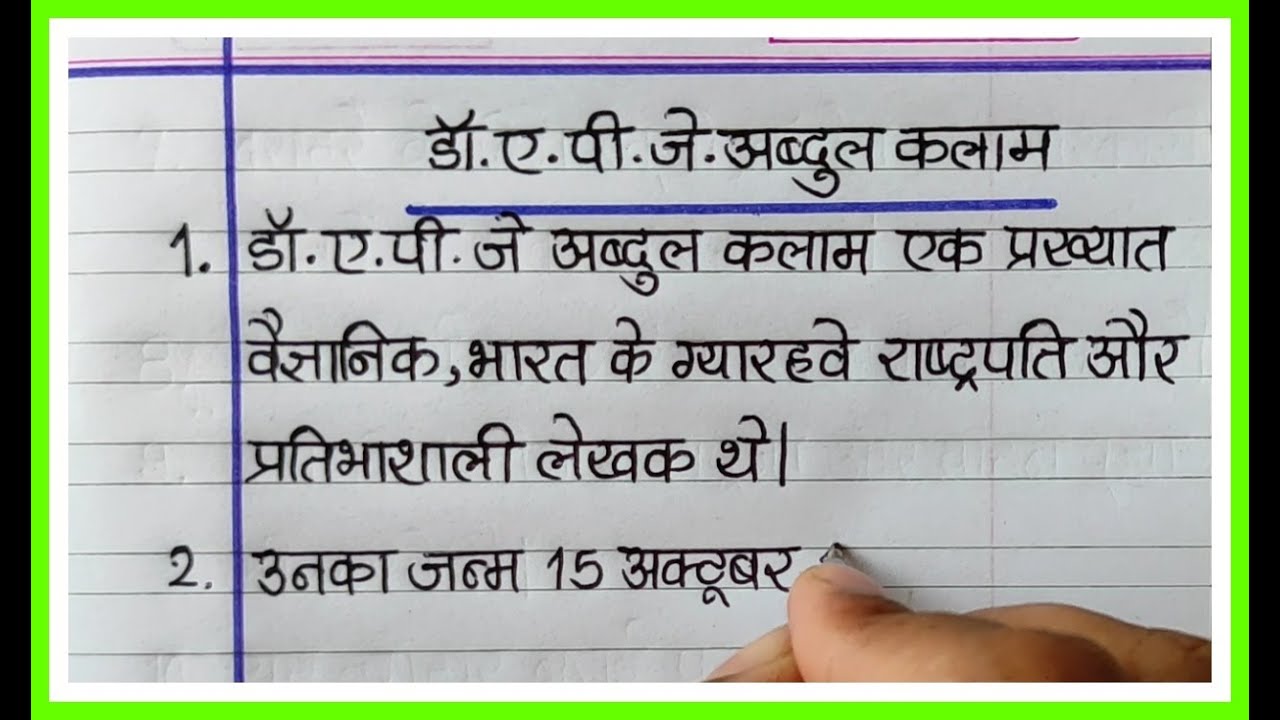 डॉ.ए.पी.जे.अब्दुल कलाम
1. डॉ.ए.पी.जे अब्दुल कलाम एक प्रख्यात
वैज्ञानिक,भारत के ग्यारहवे राष्ट्रपति और
प्रतिभाशाली लेखक थे।
2. उनका जन्म 15 अक्टूबर